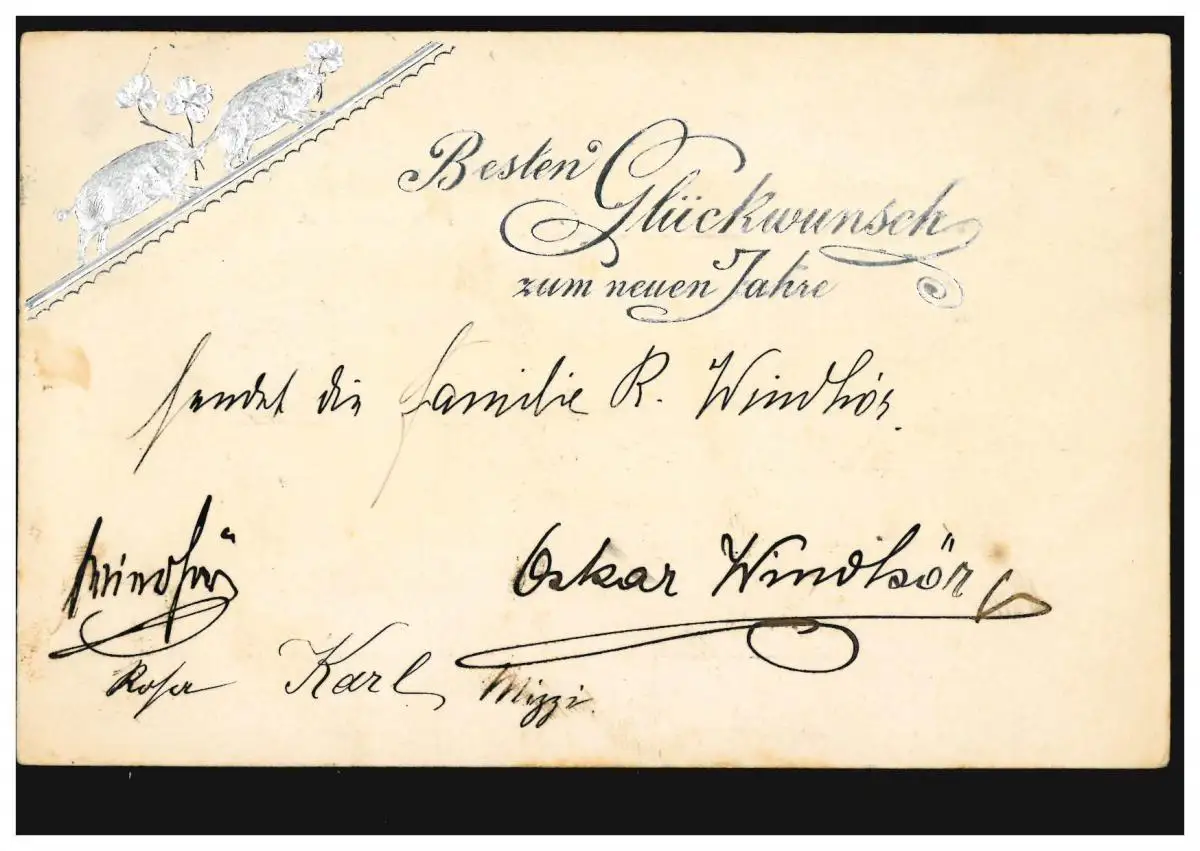 Besten Glückwunsch
zum neuen Jahre
sendet die Familie R. Windhör.
Windhör
Oskar Windhör
Rosa Karl Mizzi.